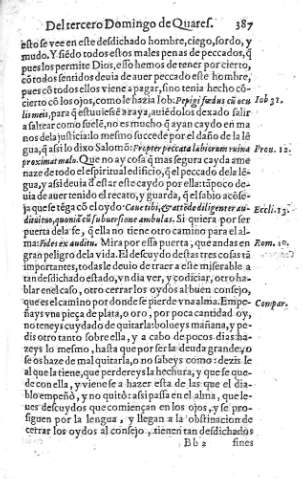 Del tercero Domingo de Quares. 387
esto se vee en este desdichado hombre, ciego, sordo, y
mudo. Y siẽdo todos estos males penas de peccados, q̃
pues los permite Dios, esso hemos de tener por cierto,
cõ todos sentidos deuia de auer peccado este hombre,
pues cõ todos ellos viene a pagar, sino tenia hecho cõ-
cierto cõ los ojos, como le hazia Iob: Pepigi fœdus cũ ocu Iob 31.
lis meis, para q̃ estuuiessẽ a raya, auiẽdoles dexado salir
a saltear como suelẽ, no es mucho q̃ ayan caydo en ma
nos de la justicia: lo mesmo succede por el daño de la lẽ
gua, q̃ assi lo dixo Salomõ: Propter peccata labiorum ruina Prou. 12.
proximat malo. Que no ay cosa q̃ mas segura cayda ame
naze de todo el espiritual edificio, q̃ el peccado de la lẽ-
gua, y assi deuia d̃ estar este caydo por ella: tãpoco de-
uia de auer tenido el recato, y guarda, q̃ el sabio acõse-
ja que se tẽga cõ el oydo: Caue tibi, & attẽde diligenter au- Eccli. 13.
ditui tuo, quoniã cũ subuersione ambulas. Si quiera por ser
puerta de la fe, q̃ ella no tiene otro camino para el al-
ma: Fides ex auditu. Mira por essa puerta, que andas en Rom. 10.
gran peligro de la vida. El descuydo destas tres cosas tã
importantes, todas le deuio de traer a este miserable a
tan desdichado estado, vn dia ver, y codiciar, otro ha-
blar en el caso, otro cerrar los oydos al buen consejo,
que es el camino por donde se pierde vna alma. Empe- Compar.
ñays vna pieça de plata, o oro, por poca cantidad oy,
no teneys cuydado de quitarla: bolueys mañana, y pe-
dis otro tanto sobre ella, y a cabo de pocos dias ha-
zeys lo mesmo, hasta que por ser la deuda grande, o
se os haze de mal quitarla, o no sabeys como: dezis le
al que la tiene, que perdereys la hechura, y que se que-
de con ella, y viene se a hazer esta de las que el dia-
blo empeñò, y no quitò: assi passa en el alma, que le-
ues descuydos que comiençan en los ojos, y se pro-
siguen por la lengua, y llegan a la obstinacion de
cerrar los oydos al consejo, tienen tan desdichados
Bb 2 fines